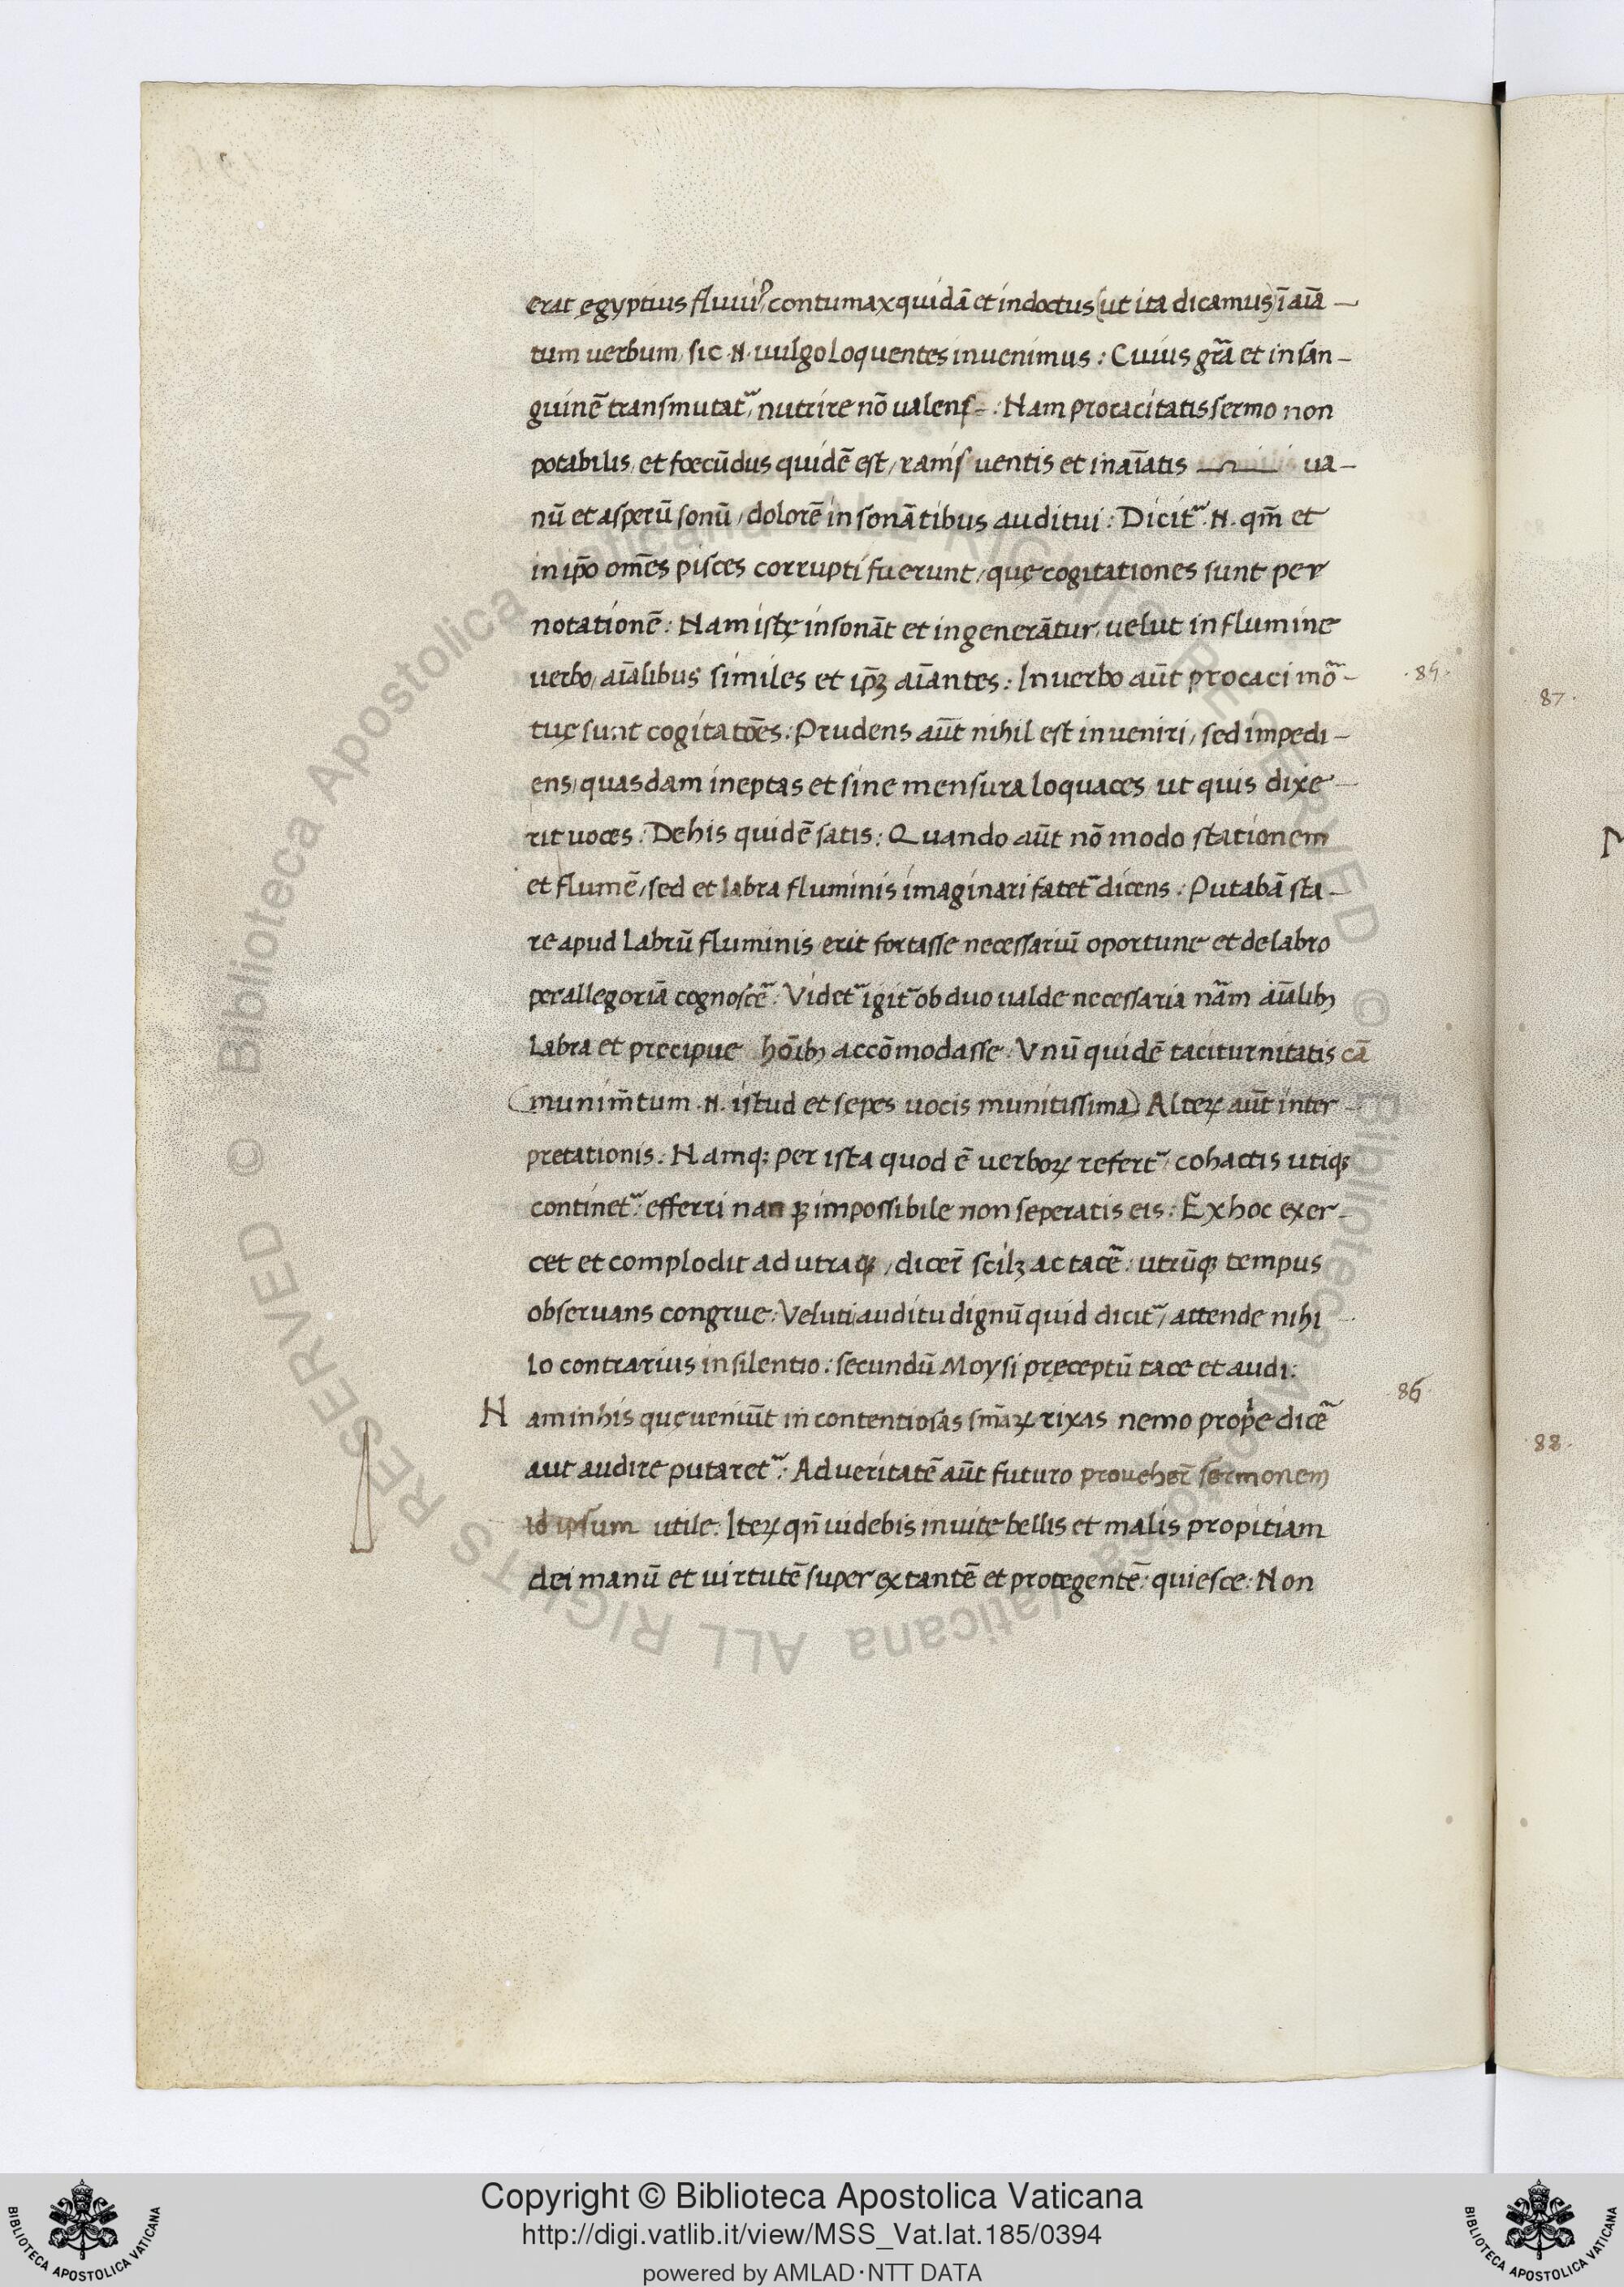 erat egyptius fluuiꝰ, contumax quidā et indoctus (ut ita dicamus) ī aīa-
tum uerbum, sic .N. uulgo loquentes inuenimus: Cuius grā et in san-
guinē transmutat᷑, nutrire nō ualens-: Nam procacitatis sermo non
potabilis, et fœcūdus quidē est, ranis uentis et inaīatis ua-
nū et asperū sonū, dolorē insonātibus auditui: Dicit᷑ .N. qm̄ et
in ip̄o om̄es pisces corrupti fuerunt, quę cogitationes sunt per
notationē: Nam istę insonāt et ingenerātur, uelut in flumine
uerbo, aīalibus similes et ip̄ꝫ aīantes: In uerbo aūt procaci mō- .85.
tuę sunt cogitatōes: Prudens aūt nihil est inueniri, sed impedi-
ens, quasdam ineptas et sine mensura loquaces, ut quis dixe-
rit uoces: De his quidē satis: Quando aūt nō modo stationem
et flumē, sed et labra fluminis imaginari fatet᷑ dicens: Putabā sta-
re apud labrū fluminis erit fortasse necessariū oportune et de labro
per allegoriā cognoscē᷑: Videt᷑ igit᷑ ob duo ualde necessaria nām aīalibꝫ
labra et precipue hōībꝫ accōmodasse: Vnū quidē taciturnitatis cā
(munim̄tum .N. istud et sepes uocis munitissima) Alteꝝ aūt inter-
pretationis: Namqꝫ per ista quod ē uerboꝝ refert᷑, cohactis utiqꝫ
continet᷑: efferri nanqꝫ impossibile non seperatis eis: Ex hoc exer-
cet et complodit ad utraqꝫ, dicer̄ scilꝫ ac tacē᷑: utrūqꝫ tempus
obseruans congrue: Veluti auditu dignū quid dicit᷑, attende nihi-
lo contrarius in silentio: secundū Moysi pręceptū tace et audi:
Nam in his quę ueniūt in contentiosas sn̄iaꝝ rixas nemo prop̄e dicē᷑ .86.
aut audire putaret᷑: Ad ueritatē aūt futuro proueher̄ sermonem
id ipsum utile: Iteꝝ qn̄ uidebis in uitę bellis et malis propitiam
dei manū et uirtutē superextantē et protegentē: quiesce: Non
.87.
.88.
Copyright © Biblioteca Apostolica Vaticana
http://digi.vatlib.it/view/MSS_Vat.lat.185/0394
powered by AMLAD·NTT DATA
BIBLIOTECA APOSTOLICA VATICANA
BIBLIOTECA APOSTOLICA VATICANA
© Biblioteca Apostolica Vaticana ALL RIGHTS RESERVED
© Biblioteca Apostolica Vaticana ALL RIGHTS RESERVED